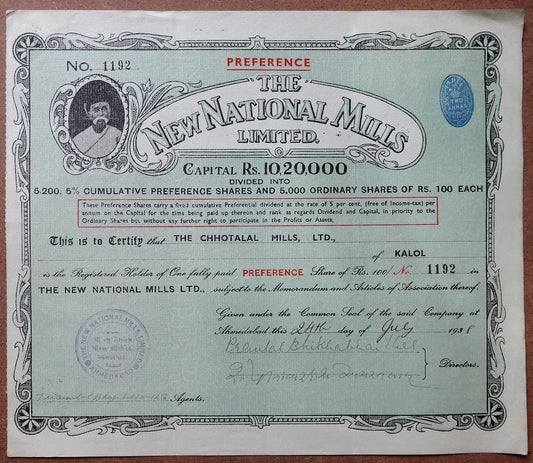 No. 1192
PREFERENCE
THE
NEW NATIONAL MILLS
LIMITED.
TWO
ANNAS
CAPITAL RS. 10,20,000
DIVIDED INTO
5,200, 5% CUMULATIVE PREFERENCE SHARES AND 5,000 ORDINARY SHARES OF RS. 100 EACH
These Preference Shares carry a fixed cumulative Preferential dividend at the rate of 5 per cent, (free of Income-tax) per
annum on the Capital for the time being paid up thereon and rank as regards Dividend and Capital, in priority to the
Ordinary Shares but without any further right to participate in the Profits or Assets.
This is to Certify that THE CHHOTALAL MILLS, LTD.,
of KALOL
is the Registered Holder of One fully paid PREFERENCE Share of Rs. 100/ No. 1192 in
THE NEW NATIONAL MILLS LTD., subject to the Memorandum and Articles of Association thereof.
Given under the Common Seal of the said Company at
Ahmedabad this 24th day of July 1938
THE NEW NATIONAL MILLS LIMITED
AHMEDABAD
Directors.
Agents.